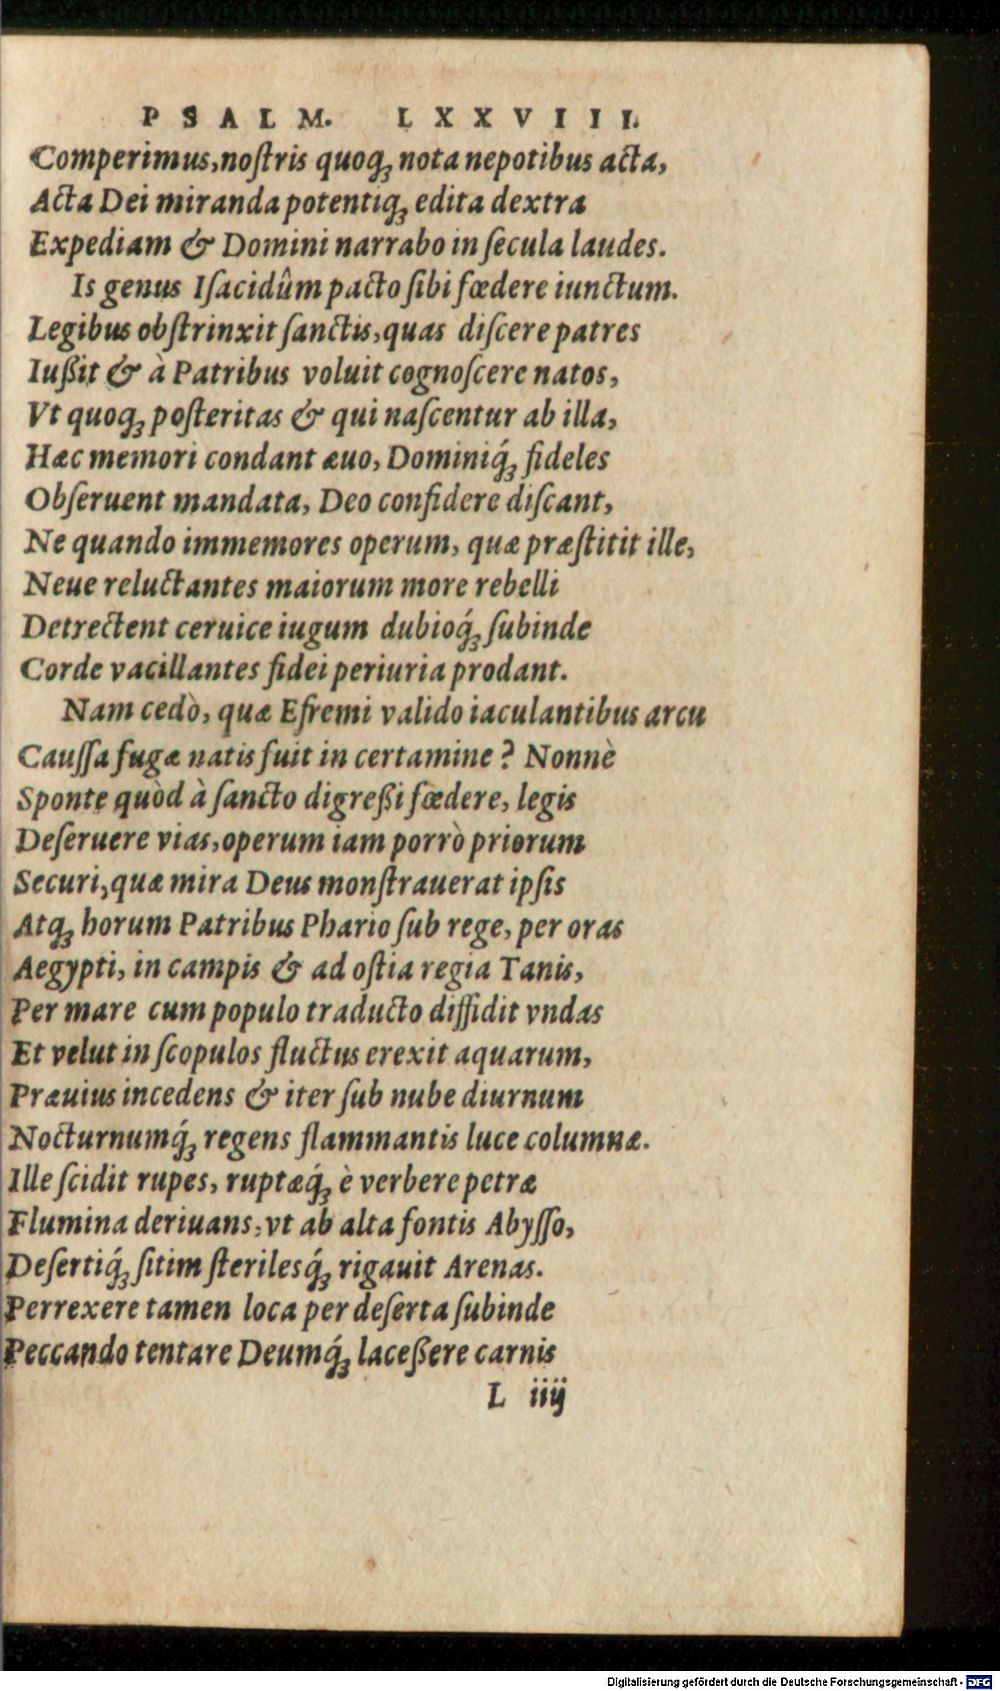 PSALM. LXXVIII.
Comperimus, noſtris quoqꝫ nota nepotibus acta,
Acta Dei miranda potentiqꝫ edita dextra
Expediam & Domini narrabo in ſecula laudes.
Is genus Iſacidûm pacto ſibi fœdere iunctum.
Legibus obſtrinxit ſanctis, quas diſcere patres
Iußit & à Patribus voluit cognoſcere natos,
Vt quoqꝫ poſteritas & qui naſcentur ab illa,
Hæc memori condant æuo, Dominiq́ꝫ fideles
Obſeruent mandata, Deo confidere diſcant,
Ne quando immemores operum, quæ præſtitit ille,
Neue reluctantes maiorum more rebelli
Detrectent ceruice iugum dubioq́ꝫ ſubinde
Corde vacillantes fidei periuria prodant.
Nam cedò, quæ Efremi valido iaculantibus arcu
Cauſſa fugæ natis fuit in certamine? Nonnè
Sponte quòd à ſancto digreßi fœdere, legis
Deſeruere vias, operum iam porrò priorum
Securi, quæ mira Deus monſtrauerat ipſis
Atqꝫ horum Patribus Phario ſub rege, per oras
Aegypti, in campis & ad oſtia regia Tanis,
Per mare cum populo traducto diffidit vndas
Et velut in ſcopulos fluctus erexit aquarum,
Præuius incedens & iter ſub nube diurnum
Nocturnumq́ꝫ regens flammantis luce columnæ.
Ille ſcidit rupes, ruptæq́ꝫ è verbere petræ
Flumina deriuans, vt ab alta fontis Abyſſo,
Deſertiq́ꝫ ſitim ſterilesq́ꝫ rigauit Arenas.
Perrexere tamen loca per deſerta ſubinde
Peccando tentare Deumq́ꝫ laceßere carnis
L iiij
Digitalisierung gefördert durch die Deutsche Forschungsgemeinschaft - DFG